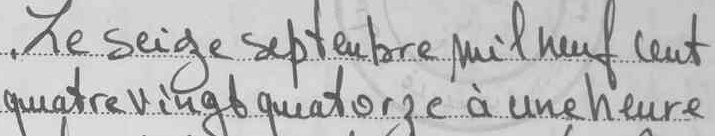 Le seize septembre mil neuf cent
quatre vingt quatorze à une heure